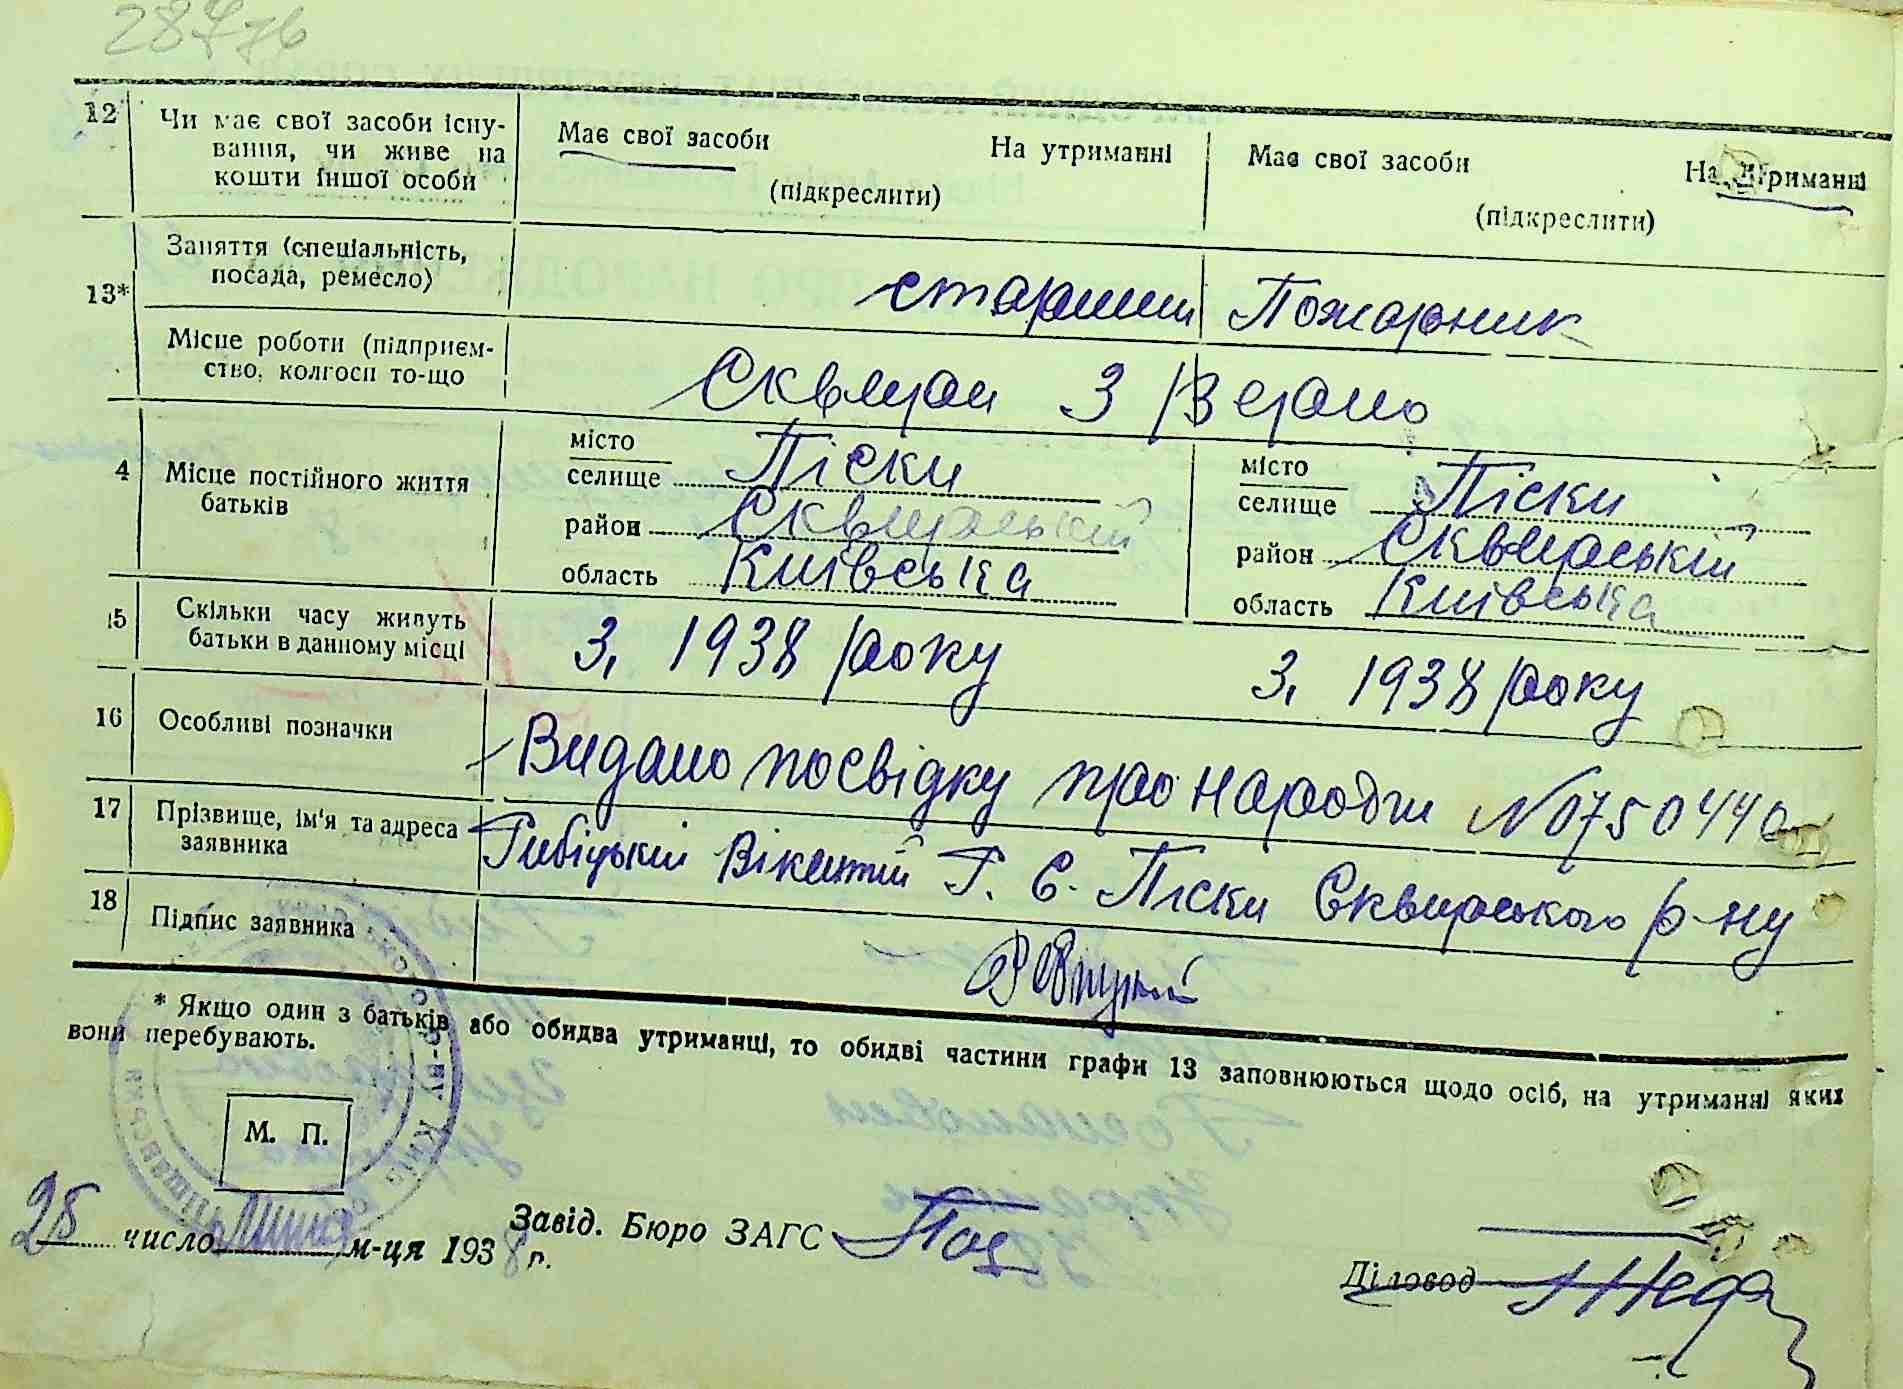 28776
12 Чи має свої засоби існу-
вання, чи живе на
кошти іншої особи
Має свої засоби На утриманні
(підкреслити)
Має свої засоби На утриманні
(підкреслити)
13*
Заняття (спеціальність,
посада, ремесло)
старший Пожарник
Місце роботи (підприєм-
ство, колгосп то-що
4 Місце постійного життя
батьків
місто
селище Піски
район Сквирський
область Київська
місто
селище Піски
район Сквирський
область Київська
15 Скільки часу живуть
батьки в данному місці
З, 1938 року З, 1938 року
16 Особливі позначки
Видано посвідку про народж № 0750440
17 Прізвище, ім'я та адреса
заявника
Рибіцький Вікентій Г. С. Піски Сквирського р-ну
18 Підпис заявника
* Якщо один з батьків або обидва утриманці, то обидві частини графи 13 заповнюються щодо осіб, на утриманні яких
вони перебувають.
М. П.
28 число м-ця 1938 р.
Завід. Бюро ЗАГС
Діловод